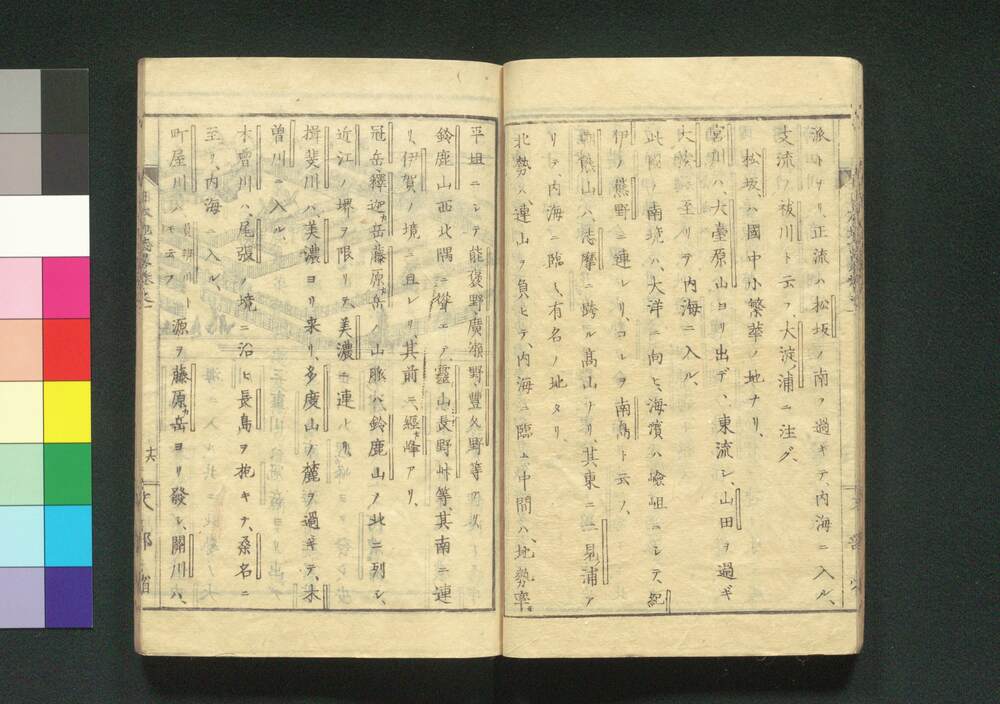 派トナリ、正流ハ松坂ノ南ヲ過ギテ、内海ニ入ル、
支流ヲ祓川ト云フ、大淀ノ浦ニ注グ、
松坂ハ國中ノ小繁華ノ地ナリ、
宮川ハ、大臺原山ヨリ出デ、東流シ、山田ヲ過ギ
大湊ニ至リテ内海ニ入ル、
此國ノ南境ハ、大洋ニ向ヒ、海濱ハ嶮岨ニシテ、紀
伊ノ熊野ニ連レリ、コレヲ南島ト云フ、
熊山ハ、志摩ニ跨ル高山ナリ、其東ニ二見ノ浦ア
リテ、内海ニ臨ミ、有名ノ地タリ、
北勢ハ、連山ヲ負ヒテ、内海ニ臨ム、中間ハ、地勢率
平坦ニシテ能褒野、廣瀬野、豊久野等ノ
鈴鹿山西北隅ニ聳エテ、靈山、長野峠等、其南ニ連
リ、伊賀ノ境ニ亘レリ、其前ニ經峰アリ、
冠岳、釋迦岳、藤原岳ノ山脈ハ、鈴鹿山ノ北ニ列シ、
近江ノ堺ヲ限リテ、美濃ニ連レリ、
揖斐川ハ、美濃ヨリ來リ、多度山ノ麓ヲ過ギテ、木
曽川ニ入ル、
木曽川ハ、尾張ノ境ニ沿ヒ、長島ヲ抱キテ、桑名ニ
至リ、内海ニ入ル、
町屋川ハ 員辨川トモ云フ 源ヲ藤原岳ヨリ發シ、開川ハ、
文部省